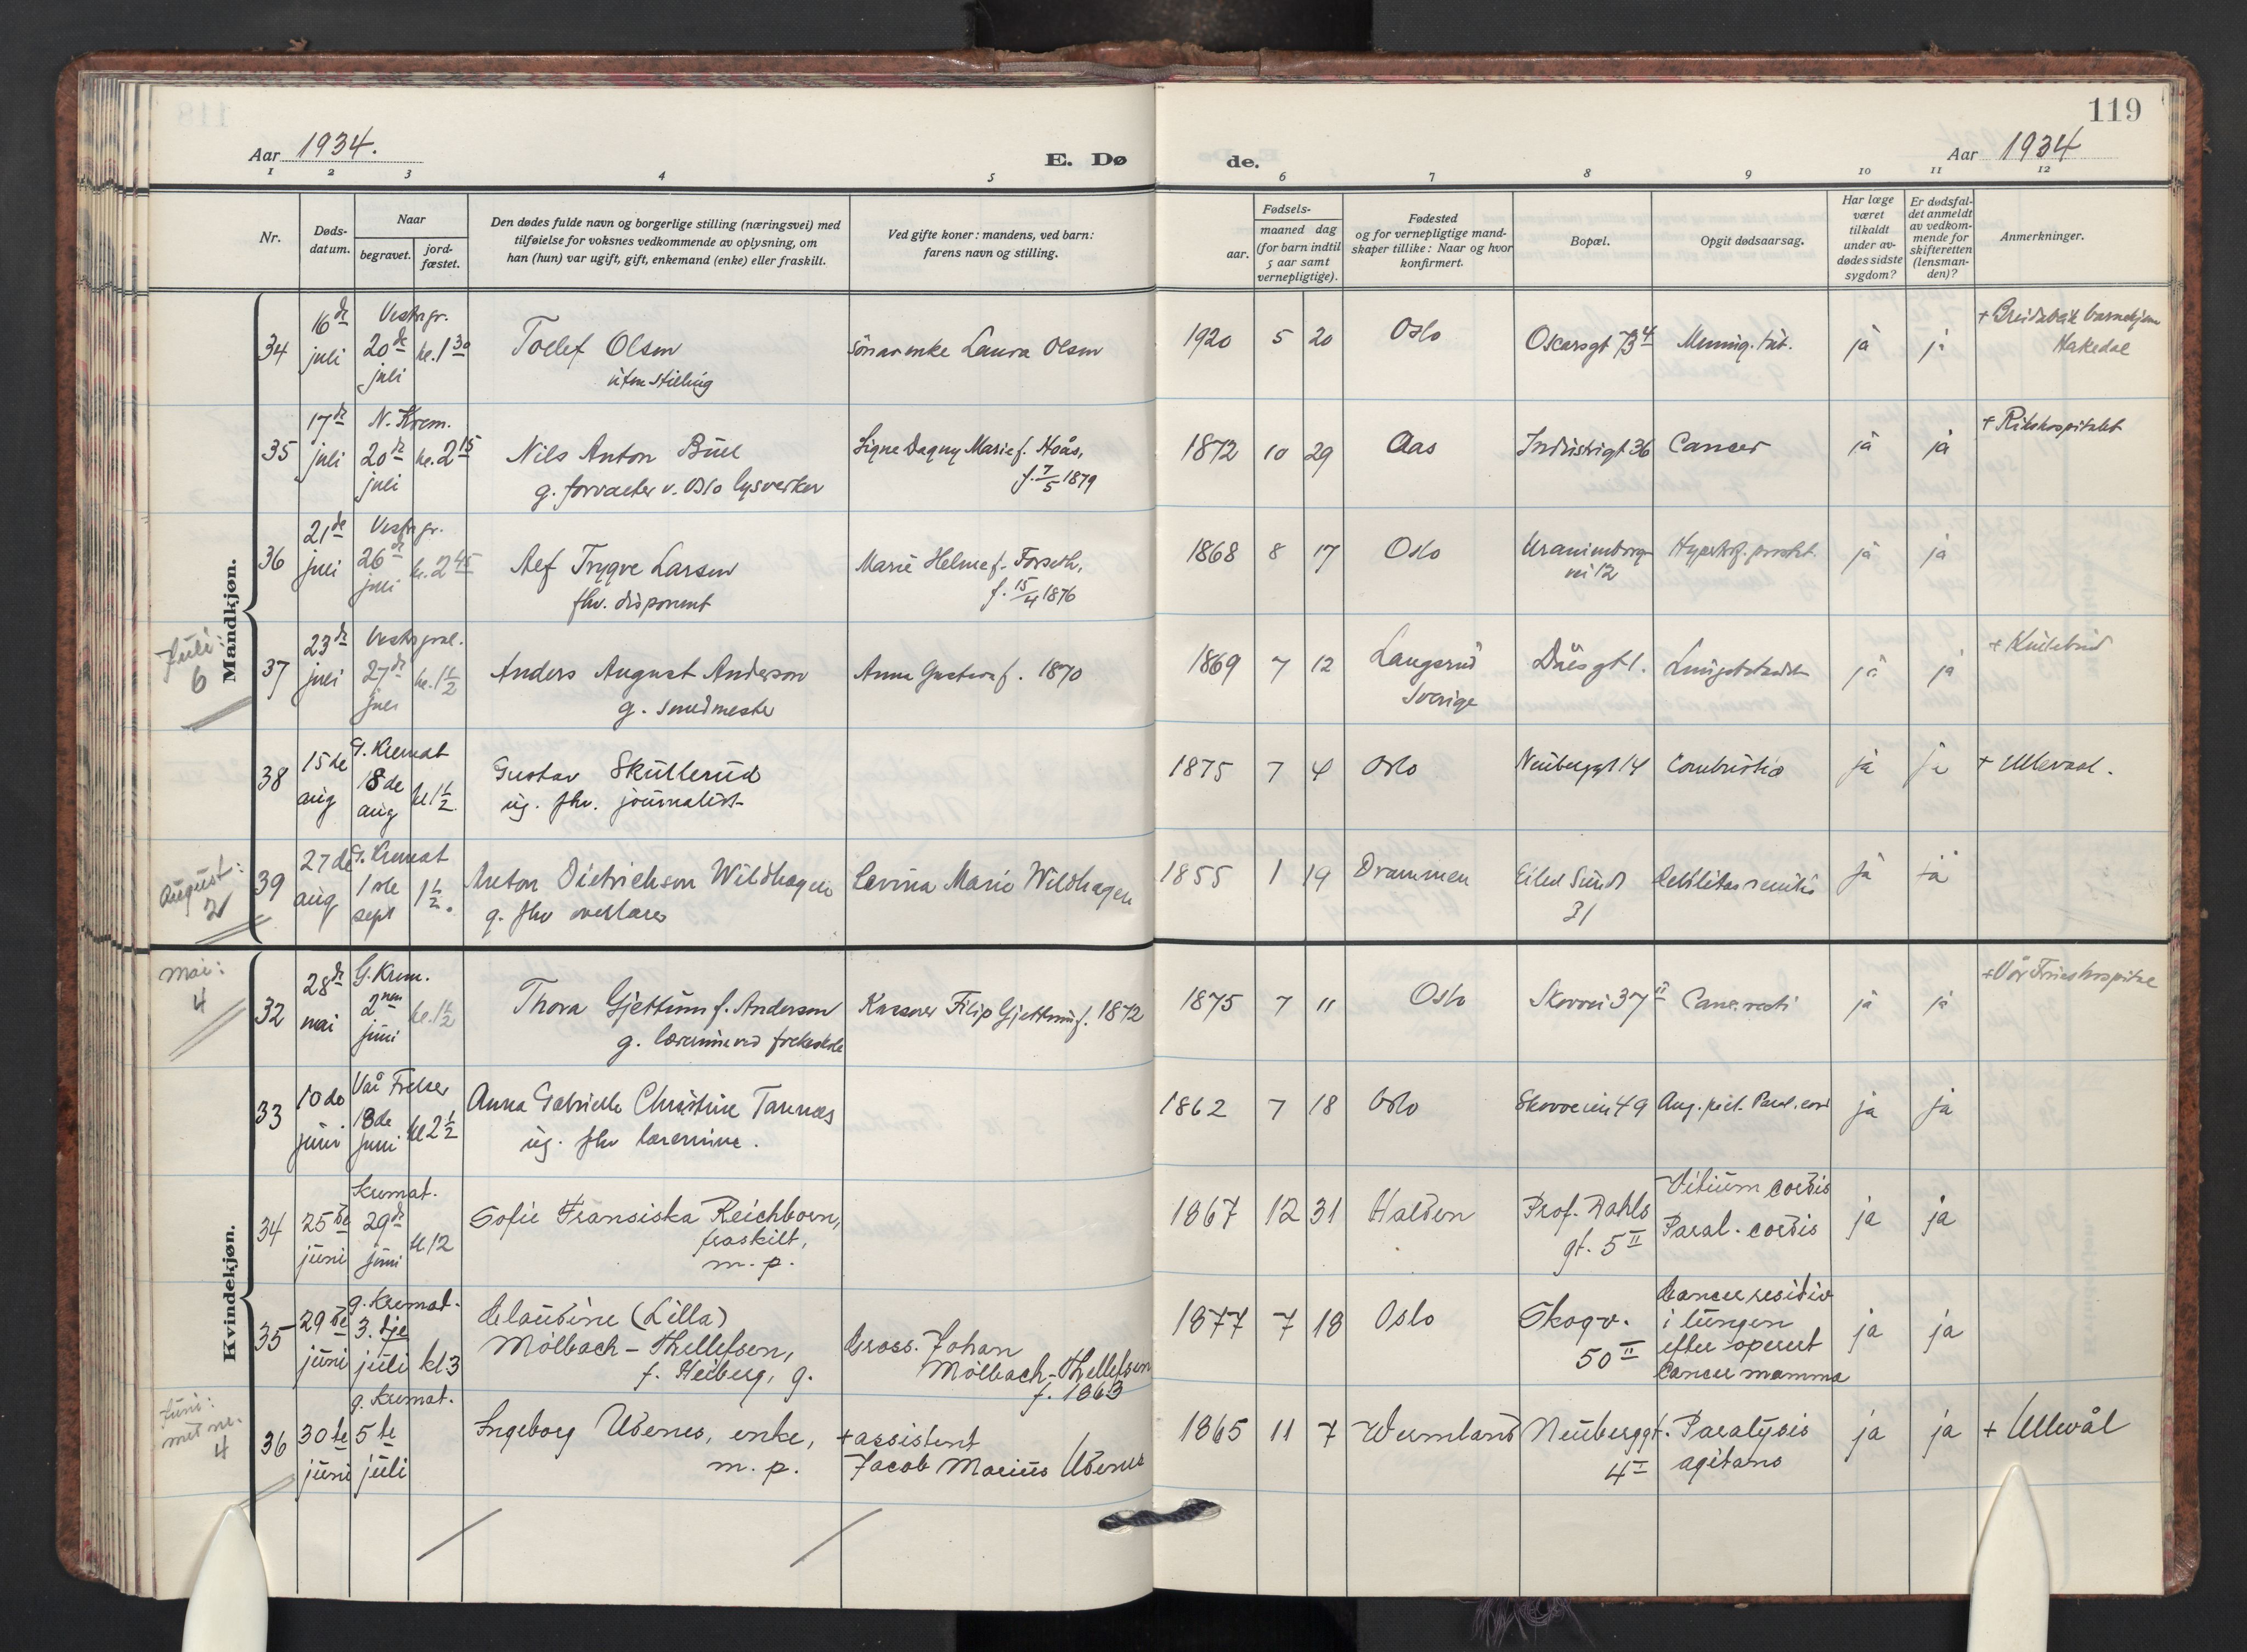 119
Aar 1934.
E. Dø de.
Aar 1934
1 2 3 4 5 6 7 8 9 10 11 12
Nr.
Døds-
datum.
Naar
begravet.
jord-
fæstet.
Den dødes fulde navn og borgerlige stilling (næringsvei) med
tilføielse for voksnes vedkommende av oplysning, om
han (hun) var ugift, gift, enkemand (enke) eller fraskilt.
Ved gifte koner: mandens, ved barn:
farens navn og stilling.
Fødsels-
aar.
maaned dag
(for barn indtil
5 aar samt
vernepligtige).
Fødested
og for vernepligtige mand-
skaper tillike: Naar og hvor
konfirmert.
Bopæl.
Opgit dødsaarsag.
Har læge
været
tilkaldt
under av-
dødes sidste
sygdom?
Er dødsfal-
det anmeldt
av vedkom-
mende for
skifteretten
(lensman-
den)?
Anmerkninger.
Mandkjøn.
34 16de juli Vestre gr. 20de juli kl. 1 30 Tollef Olsen Sön av enke Laura Olsen 1920 5 20 Oslo Oscarsgt 73 4 Mening. tub. ja ja
uten stilling
Hakedal
35 17de juli N. Krem. 20de juli kl. 2 15 Nils Anton Bull Signe Dagny Marie f. Hoås, 1872 10 29 Aas Industrigt 36 Cancer ja ja + Rikshospitalet
g. forvalter v. Oslo lysverker f. 7/5 1879
36 21de juli Vestre gr. 26de juli kl. 2 45 Alf Trygve Larsen Marie Helene f. Forseth, 1868 8 17 Oslo Uranienborg- Hypertrof. prostat. ja ja
fhv. disponent f. 15/4 1876 vei 12
Juli:
6
37 23de juli Vestre grav. 27de juli kl. 1 1/2 Anders August Anderson Anna Gustava f. 1870 1869 7 12 Langsrud Daasgt 1. ja ja
g. smedmester Sverige
38 15de aug G. Kremat 18de aug kl 1 1/2 Gustav Skullerud 1875 7 4 Oslo Neuberggt 14 Combustio ja ja + Ullevaal.
ug. fhv. journalist
August:
2
39 27de aug G. Kremat 1ste sept 1 1/2. Anton Dietrichson Wildhagen Lavina Marie Wildhagen 1855 1 19 Drammen Eilert Sundt Debilitas senilis ja ja
g. fhv overlærer 31
Kvindekjøn.
mai:
4
32 28de mai G. Krem. 2nen juni kl. 1 1/2 Thora Gjettum f. Anderson Kasserer Filip Gjettum f. 1872 1875 7 11 Oslo Skovvei 37 II Canc. recti ja ja
g. lærerinne ved folkeskole
33 10de juni Vår Frelser 13de juni kl 2 1/2 Anna Gabrielle Christine Tannæs 1862 7 18 Oslo Skovveien 49 Ang. pect. Paral. cord ja ja
ug. fhv lærerinne.
34 25de juni Kremat. 29de juni kl 12 Sofie Fransiska Reichborn, 1867 12 31 Halden Prof. Dahls gt. 5 II Vitium cordis Paral. cordis ja ja
fraskilt,
m. p.
35 29de juni g. Kremat. 3.dje juli kl 3 Claudine (Lilla) 1877 7 18 Oslo Skogv. 50 II Cancer residiv ja ja
Mölbach-Thellefsen, Gross. Johan i lungen
f. Heiberg, g. Mölbach-Thellefsen efter operert
f. 1863 cancer mamma
Juni:
4
36 30te juni g. Kremat. 5te juli Ingeborg Udenes, enke, + assistent 1865 11 7 Wermland Neuberggt. 4 I Paralysis agitans ja ja + Ullevål
m. p. Jacob Marius Udenes